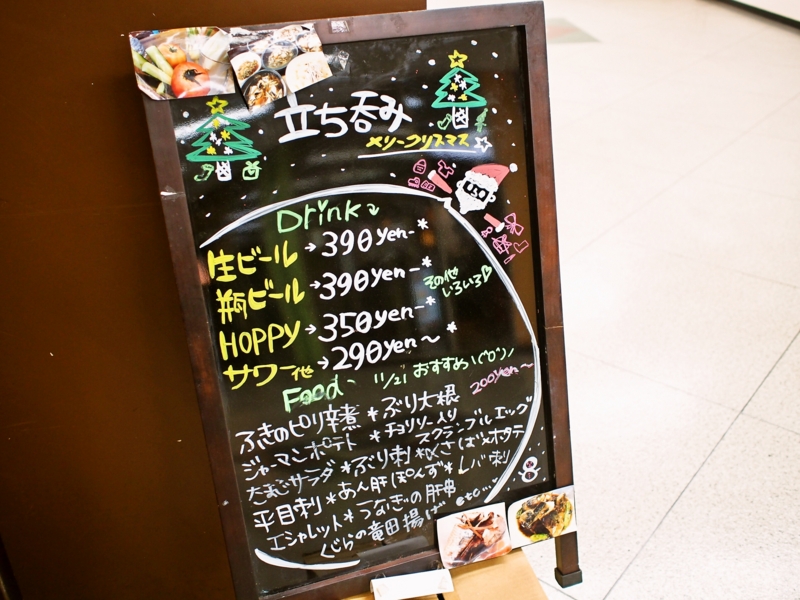 立ち呑み
メリークリスマス
Drink
生ビール→390yen-*
瓶ビール→390yen-*
その他
いろいろ
HOPPY→350yen-*
サワー他→290yen~*
Food- 11/21 おすすめ\(^o^)/
200yen~
ふきのピリ辛煮*ぶり大根
ジャーマンポテト*チョリソー入り
スクランブルエッグ
たまごサラダ*ぶり刺*〆さば*ポテ
平目刺*あん肝ぽんず*レバ刺
エシャレット*うなぎの肝串
くじらの竜田揚げ etc...